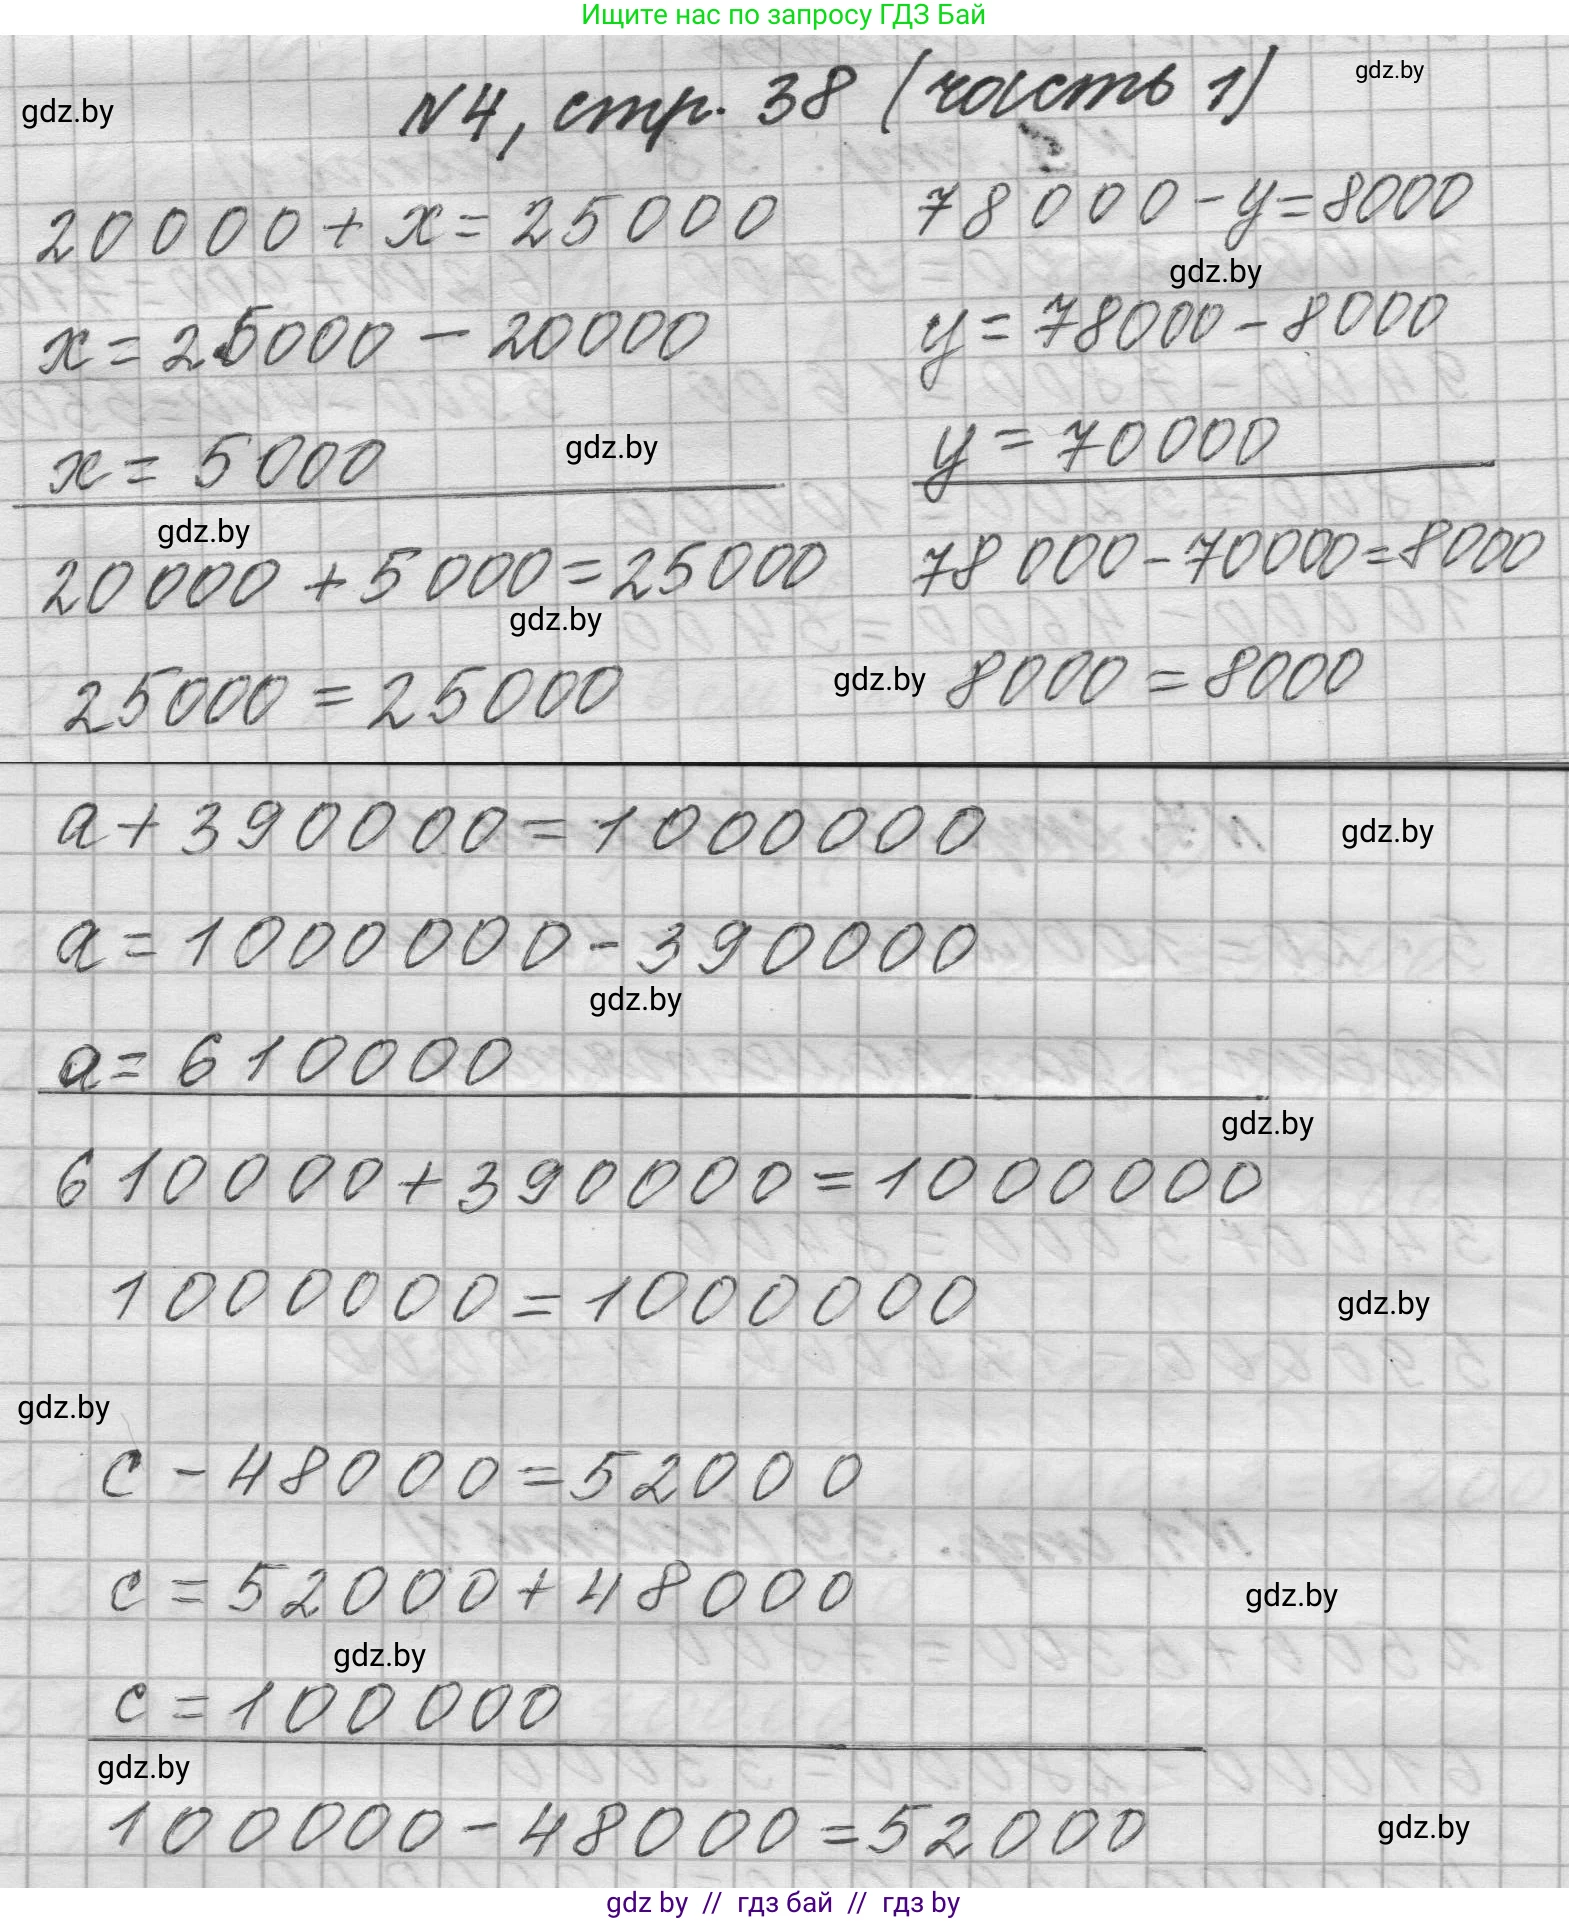 Ищите нас по запросу ГДЗ Бай
gdz.by
№4, стр. 38 (часть 1)
gdz.by
20000 + x = 25000
x = 25000 - 20000
x = 5000
gdz.by
gdz.by
20000 + 5000 = 25000
gdz.by
25000 = 25000
78000 - y = 8000
gdz.by
y = 78000 - 8000
y = 70000
78000 - 70000 = 8000
gdz.by
8000 = 8000
a + 390000 = 1000000
gdz.by
a = 1000000 - 390000
gdz.by
a = 610000
gdz.by
610000 + 390000 = 1000000
1000000 = 1000000
gdz.by
gdz.by
c - 48000 = 52000
c = 52000 + 48000
gdz.by
gdz.by
c = 100000
gdz.by
100000 - 48000 = 52000
gdz.by
gdz by // гдз бай // гдз by